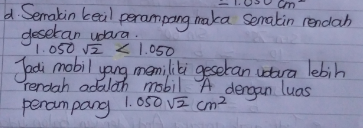 = 1.050 cm
d. Semakin kecil perampang maka semakin rendah
gesekan udara.
1.050 √2 < 1.050
Jadi mobil yang memiliki gesekan udara lebih
rendah adalah mobil A dengan luas
penampang 1.050 √2 cm²